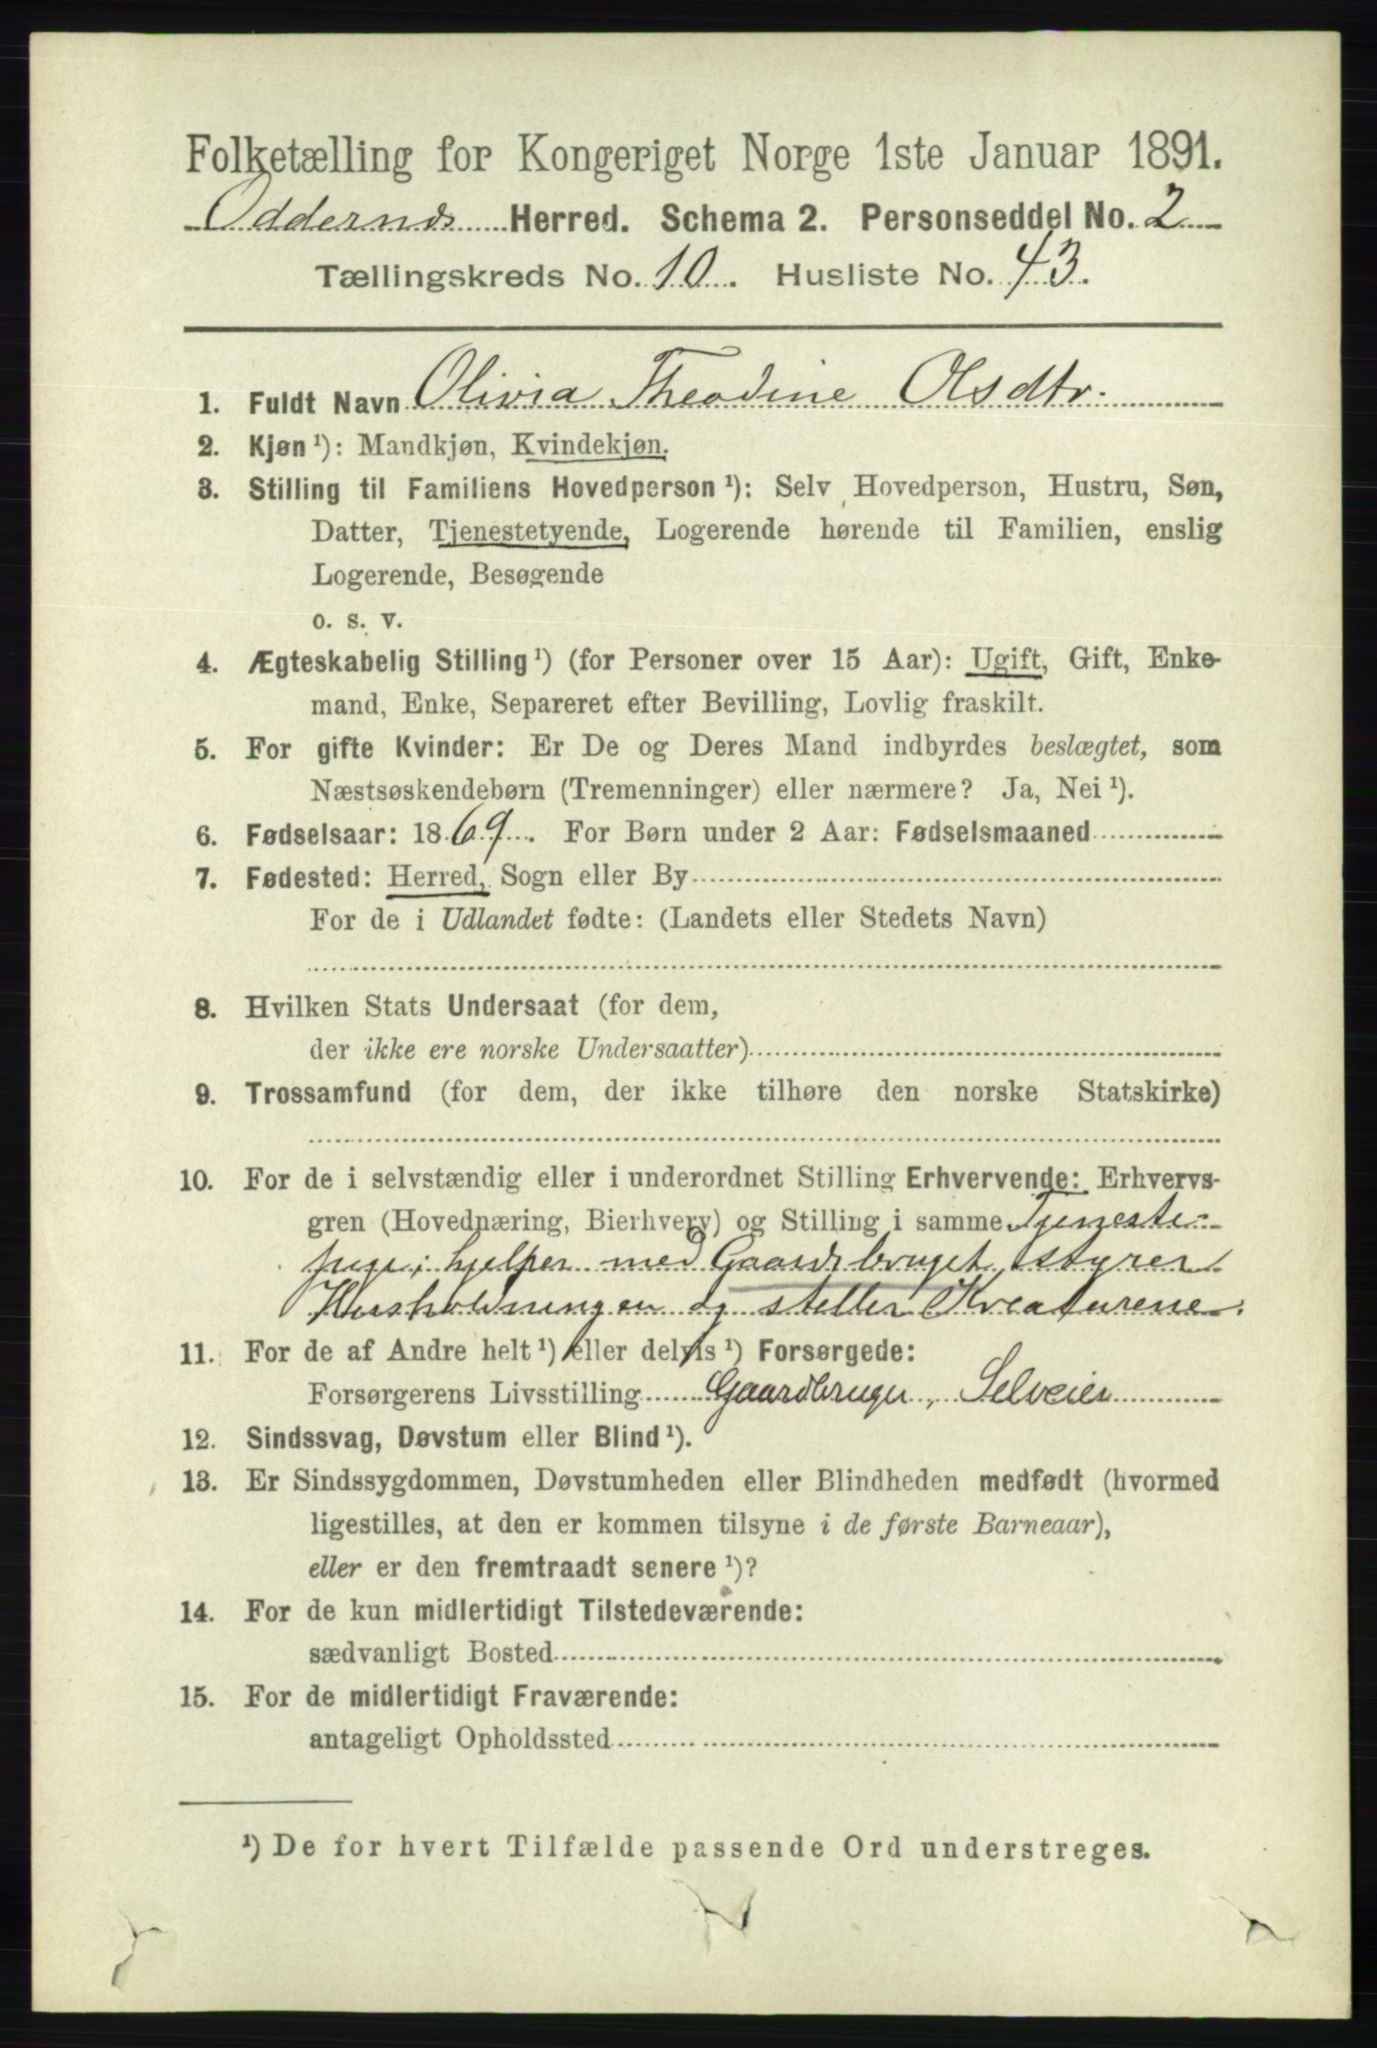 Folketælling for Kongeriget Norge 1ste Januar 1891.
Oddernæs Herred. Schema 2. Personseddel No. 2
Tællingskreds No. 10. Husliste No. 43.
1. Fuldt Navn Olivia Theodine Olsdtr.
2. Kjøn ¹): Mandkjøn, Kvindekjøn.
3. Stilling til Familiens Hovedperson ¹): Selv Hovedperson, Hustru, Søn,
Datter, Tjenestetyende, Logerende hørende til Familien, enslig
Logerende, Besøgende
o. s. v.
4. Ægteskabelig Stilling ¹) (for Personer over 15 Aar): Ugift, Gift, Enke-
mand, Enke, Separeret efter Bevilling, Lovlig fraskilt.
5. For gifte Kvinder: Er De og Deres Mand indbyrdes beslægtet, som
Næstsøskendebørn (Tremenninger) eller nærmere? Ja, Nei ¹).
6. Fødselsaar: 1869. For Børn under 2 Aar: Fødselsmaaned
7. Fødested: Herred, Sogn eller By
For de i Udlandet fødte: (Landets eller Stedets Navn)
8. Hvilken Stats Undersaat (for dem,
der ikke ere norske Undersaatter)
9. Trossamfund (for dem, der ikke tilhøre den norske Statskirke)
10. For de i selvstændig eller i underordnet Stilling Erhvervende: Erhvervs-
gren (Hovednæring, Bierhverv) og Stilling i samme Tjeneste-
pige; hjelper med Gaardsbruget, styrer
Husholdningen og steller Kreaturene.
11. For de af Andre helt ¹) eller delvis ¹) Forsørgede:
Forsørgerens Livsstilling Gaardbruger, Selveier
12. Sindssvag, Døvstum eller Blind ¹).
13. Er Sindssygdommen, Døvstumheden eller Blindheden medfødt (hvormed
ligestilles, at den er kommen tilsyne i de første Barneaar),
eller er den fremtraadt senere ¹)?
14. For de kun midlertidigt Tilstedeværende:
sædvanligt Bosted
15. For de midlertidigt Fraværende:
antageligt Opholdssted
¹) De for hvert Tilfælde passende Ord understreges.